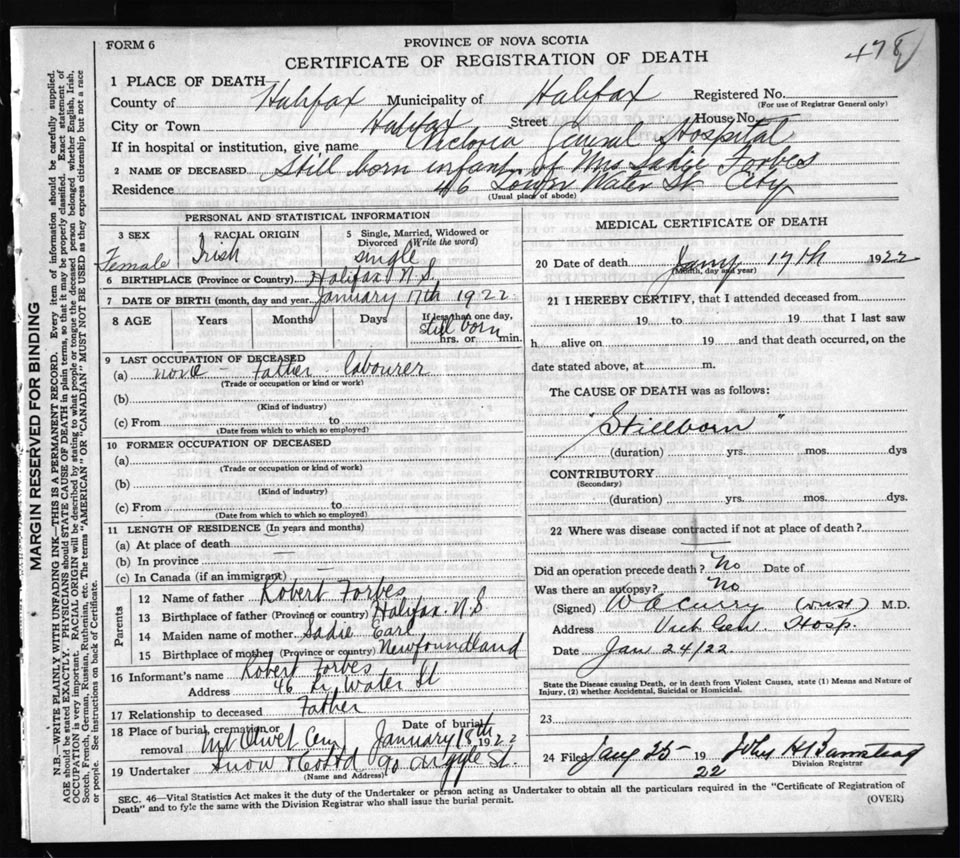 FORM 6
PROVINCE OF NOVA SCOTIA
478
CERTIFICATE OF REGISTRATION OF DEATH
1 PLACE OF DEATH
County of Halifax Municipality of Halifax Registered No.
(For use of Registrar General only)
City or Town Halifax Street House No.
If in hospital or institution, give name Victoria General Hospital
2 NAME OF DECEASED Still born infant of Mrs Sadie Forbes
Residence 46 Lower Water St. City
(Usual place of abode)
PERSONAL AND STATISTICAL INFORMATION
3 SEX Female
4 RACIAL ORIGIN Irish
5 Single, Married, Widowed or Divorced (Write the word) single
6 BIRTHPLACE (Province or Country) Halifax N.S.
7 DATE OF BIRTH (month, day and year January 17th 1922
8 AGE Years Months Days If less than one day, hrs. or min. Still born
9 LAST OCCUPATION OF DECEASED
(a) none - Father - labourer
(Trade or occupation or kind or work)
(b)
(Kind of industry)
(c) From to
(Date from which to which so employed)
10 FORMER OCCUPATION OF DECEASED
(a)
(Trade or occupation or kind of work)
(b)
(Kind of industry)
(c) From to
(Date from which to which so employed)
11 LENGTH OF RESIDENCE (In years and months)
(a) At place of death
(b) In province
(c) In Canada (if an immigrant)
Parents
12 Name of father Robert Forbes
13 Birthplace of father (Province or country) Halifax N.S
14 Maiden name of mother Sadie Earl
15 Birthplace of mother (Province or country) Newfoundland
16 Informant's name Robert Forbes
Address 46 Lr Water St
17 Relationship to deceased Father
18 Place of burial, cremation or removal Mt Olivet Cem Date of burial January 18th 1922
19 Undertaker Snow & Co Ltd 90 Argyle St.
(Name and Address)
MEDICAL CERTIFICATE OF DEATH
20 Date of death Jany 17th 1922
(Month, day and year)
21 I HEREBY CERTIFY, that I attended deceased from
19 to 19 that I last saw
h alive on 19 and that death occurred, on the
date stated above, at m.
The CAUSE OF DEATH was as follows:
"Stillborn"
(duration) yrs. mos. dys
CONTRIBUTORY
(Secondary)
(duration) yrs. mos. dys.
22 Where was disease contracted if not at place of death?
Did an operation precede death? No Date of
Was there an autopsy? No
(Signed) W A Curry M.D.
Address Vict Gen. Hosp.
Date Jan 24/22.
State the Disease causing Death, or in death from Violent Causes, state (1) Means and Nature of
Injury. (2) whether Accidental, Suicidal or Homicidal.
23
24 Filed Jany 25 1922 John H
Division Registrar
SEC. 46—Vital Statistics Act makes it the duty of the Undertaker or person acting as Undertaker to obtain all the particulars required in the "Certificate of Registration of
Death" and to fyle the same with the Division Registrar who shall issue the burial permit.
(OVER)
MARGIN RESERVED FOR BINDING
N.B.—WRITE PLAINLY WITH UNFADING INK—THIS IS A PERMANENT RECORD. Every item of information should be carefully supplied.
AGE should be stated EXACTLY. PHYSICIANS should STATE CAUSE OF DEATH in plain terms, so that it may be properly classified. Exact statement of
OCCUPATION is very important. RACIAL ORIGIN will be described by stating to what people or tongue the deceased person belonged, whether English, Irish,
Scotch, French, German, Russian, Ruthenian, etc. The terms "AMERICAN" OR "CANADIAN" MUST NOT BE USED as they express citizenship but not a race
or people. See instructions on back of Certificate.